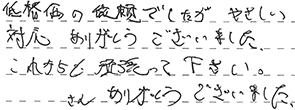 低価格の依頼でしたが やさしい
対応 ありがとう ございました。
これからも 頑張って 下さい。
さん ありがとう ございました。